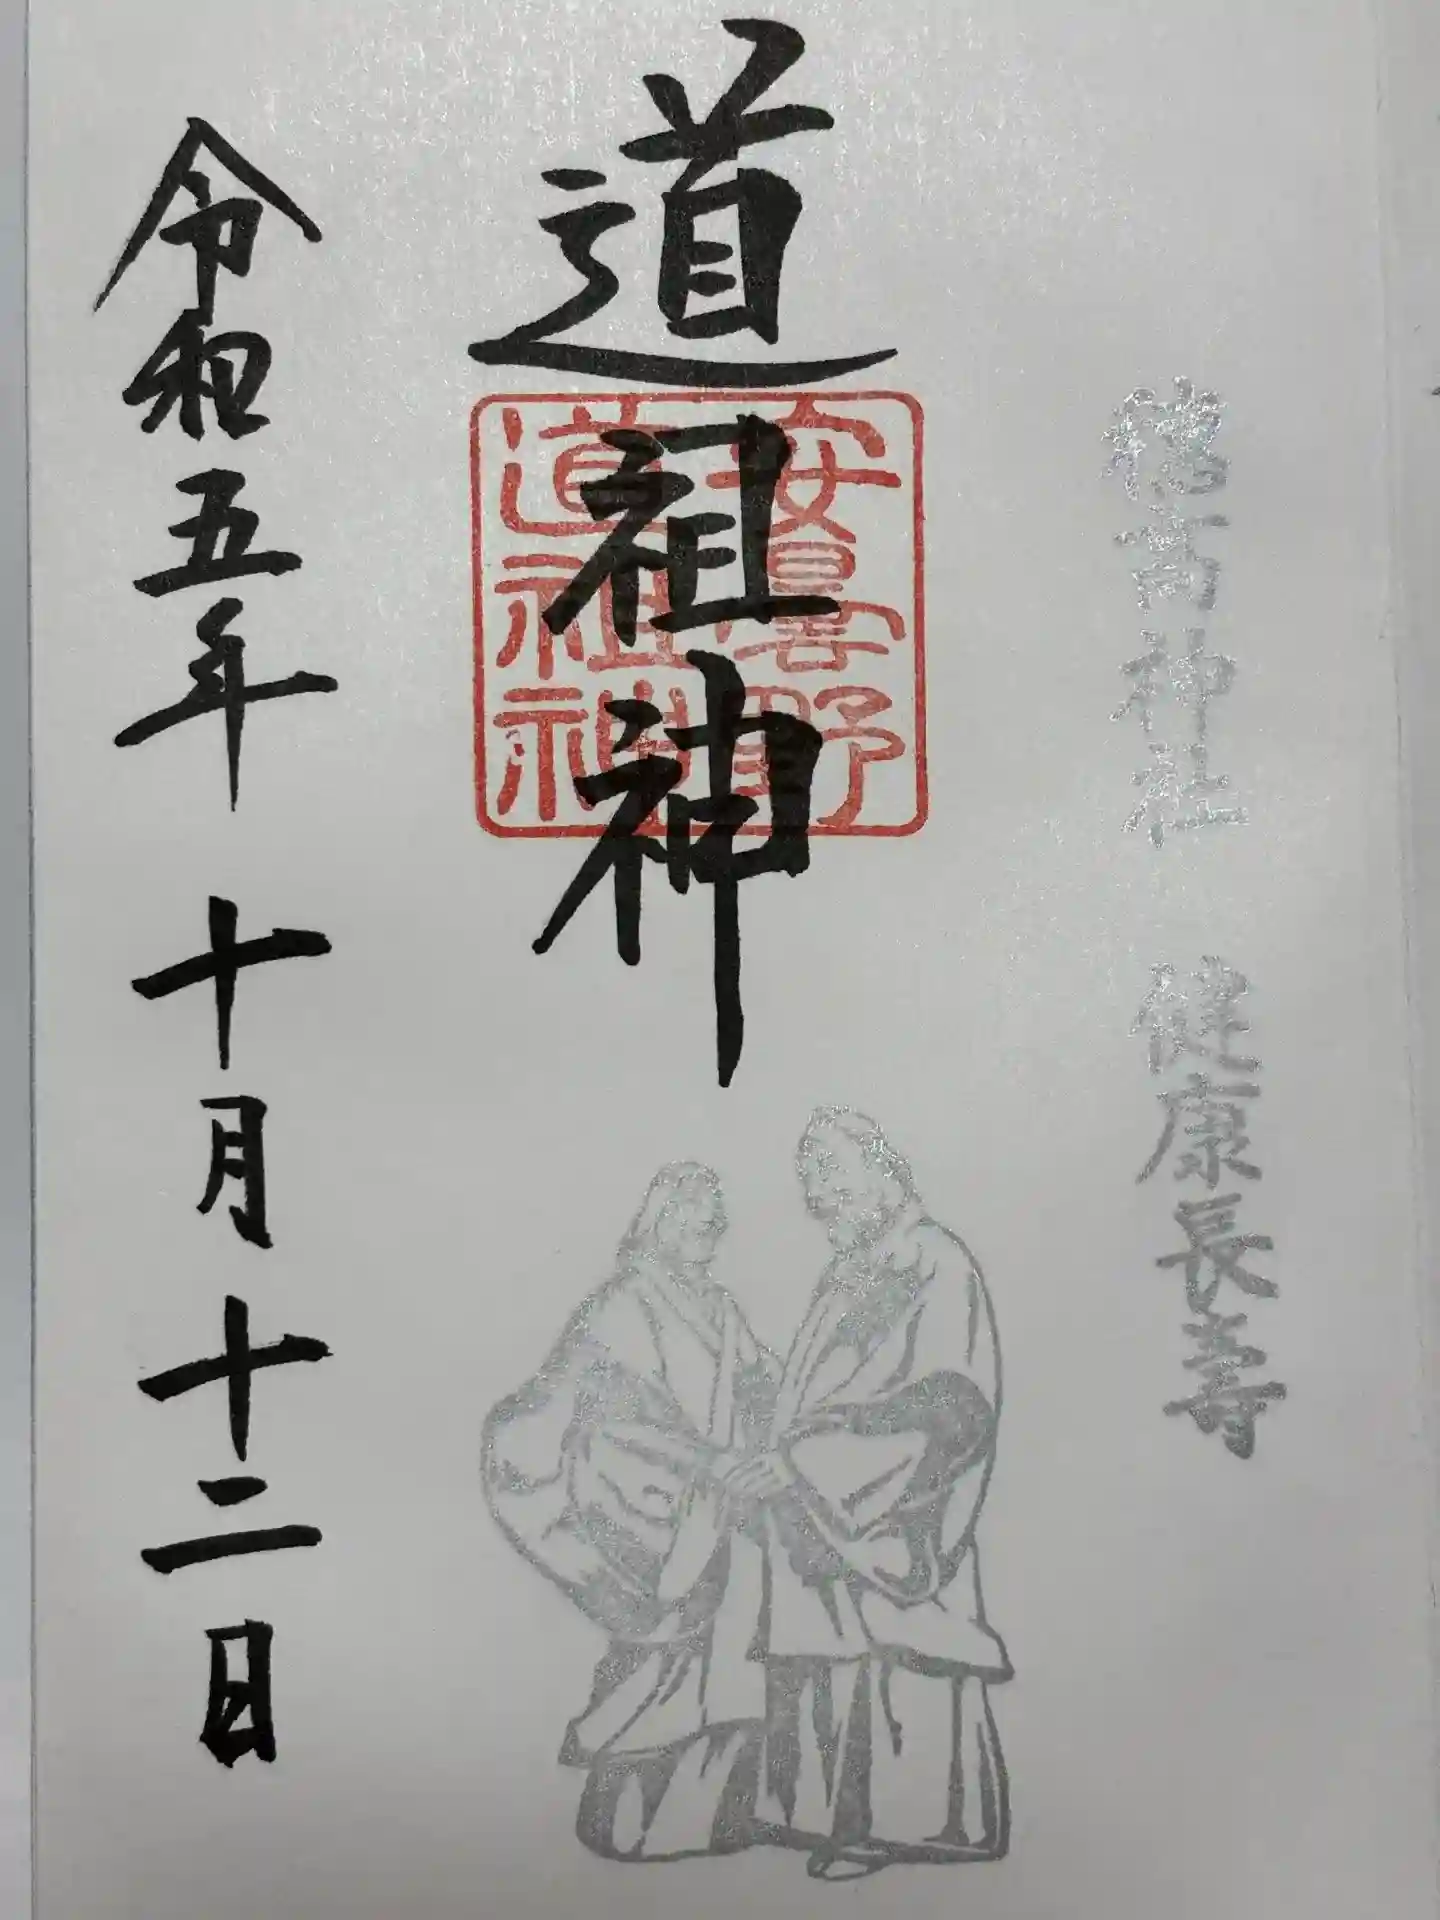 穂高神社 健康長寿
道祖神
安曇野
道祖神
令和五年 十月十二日